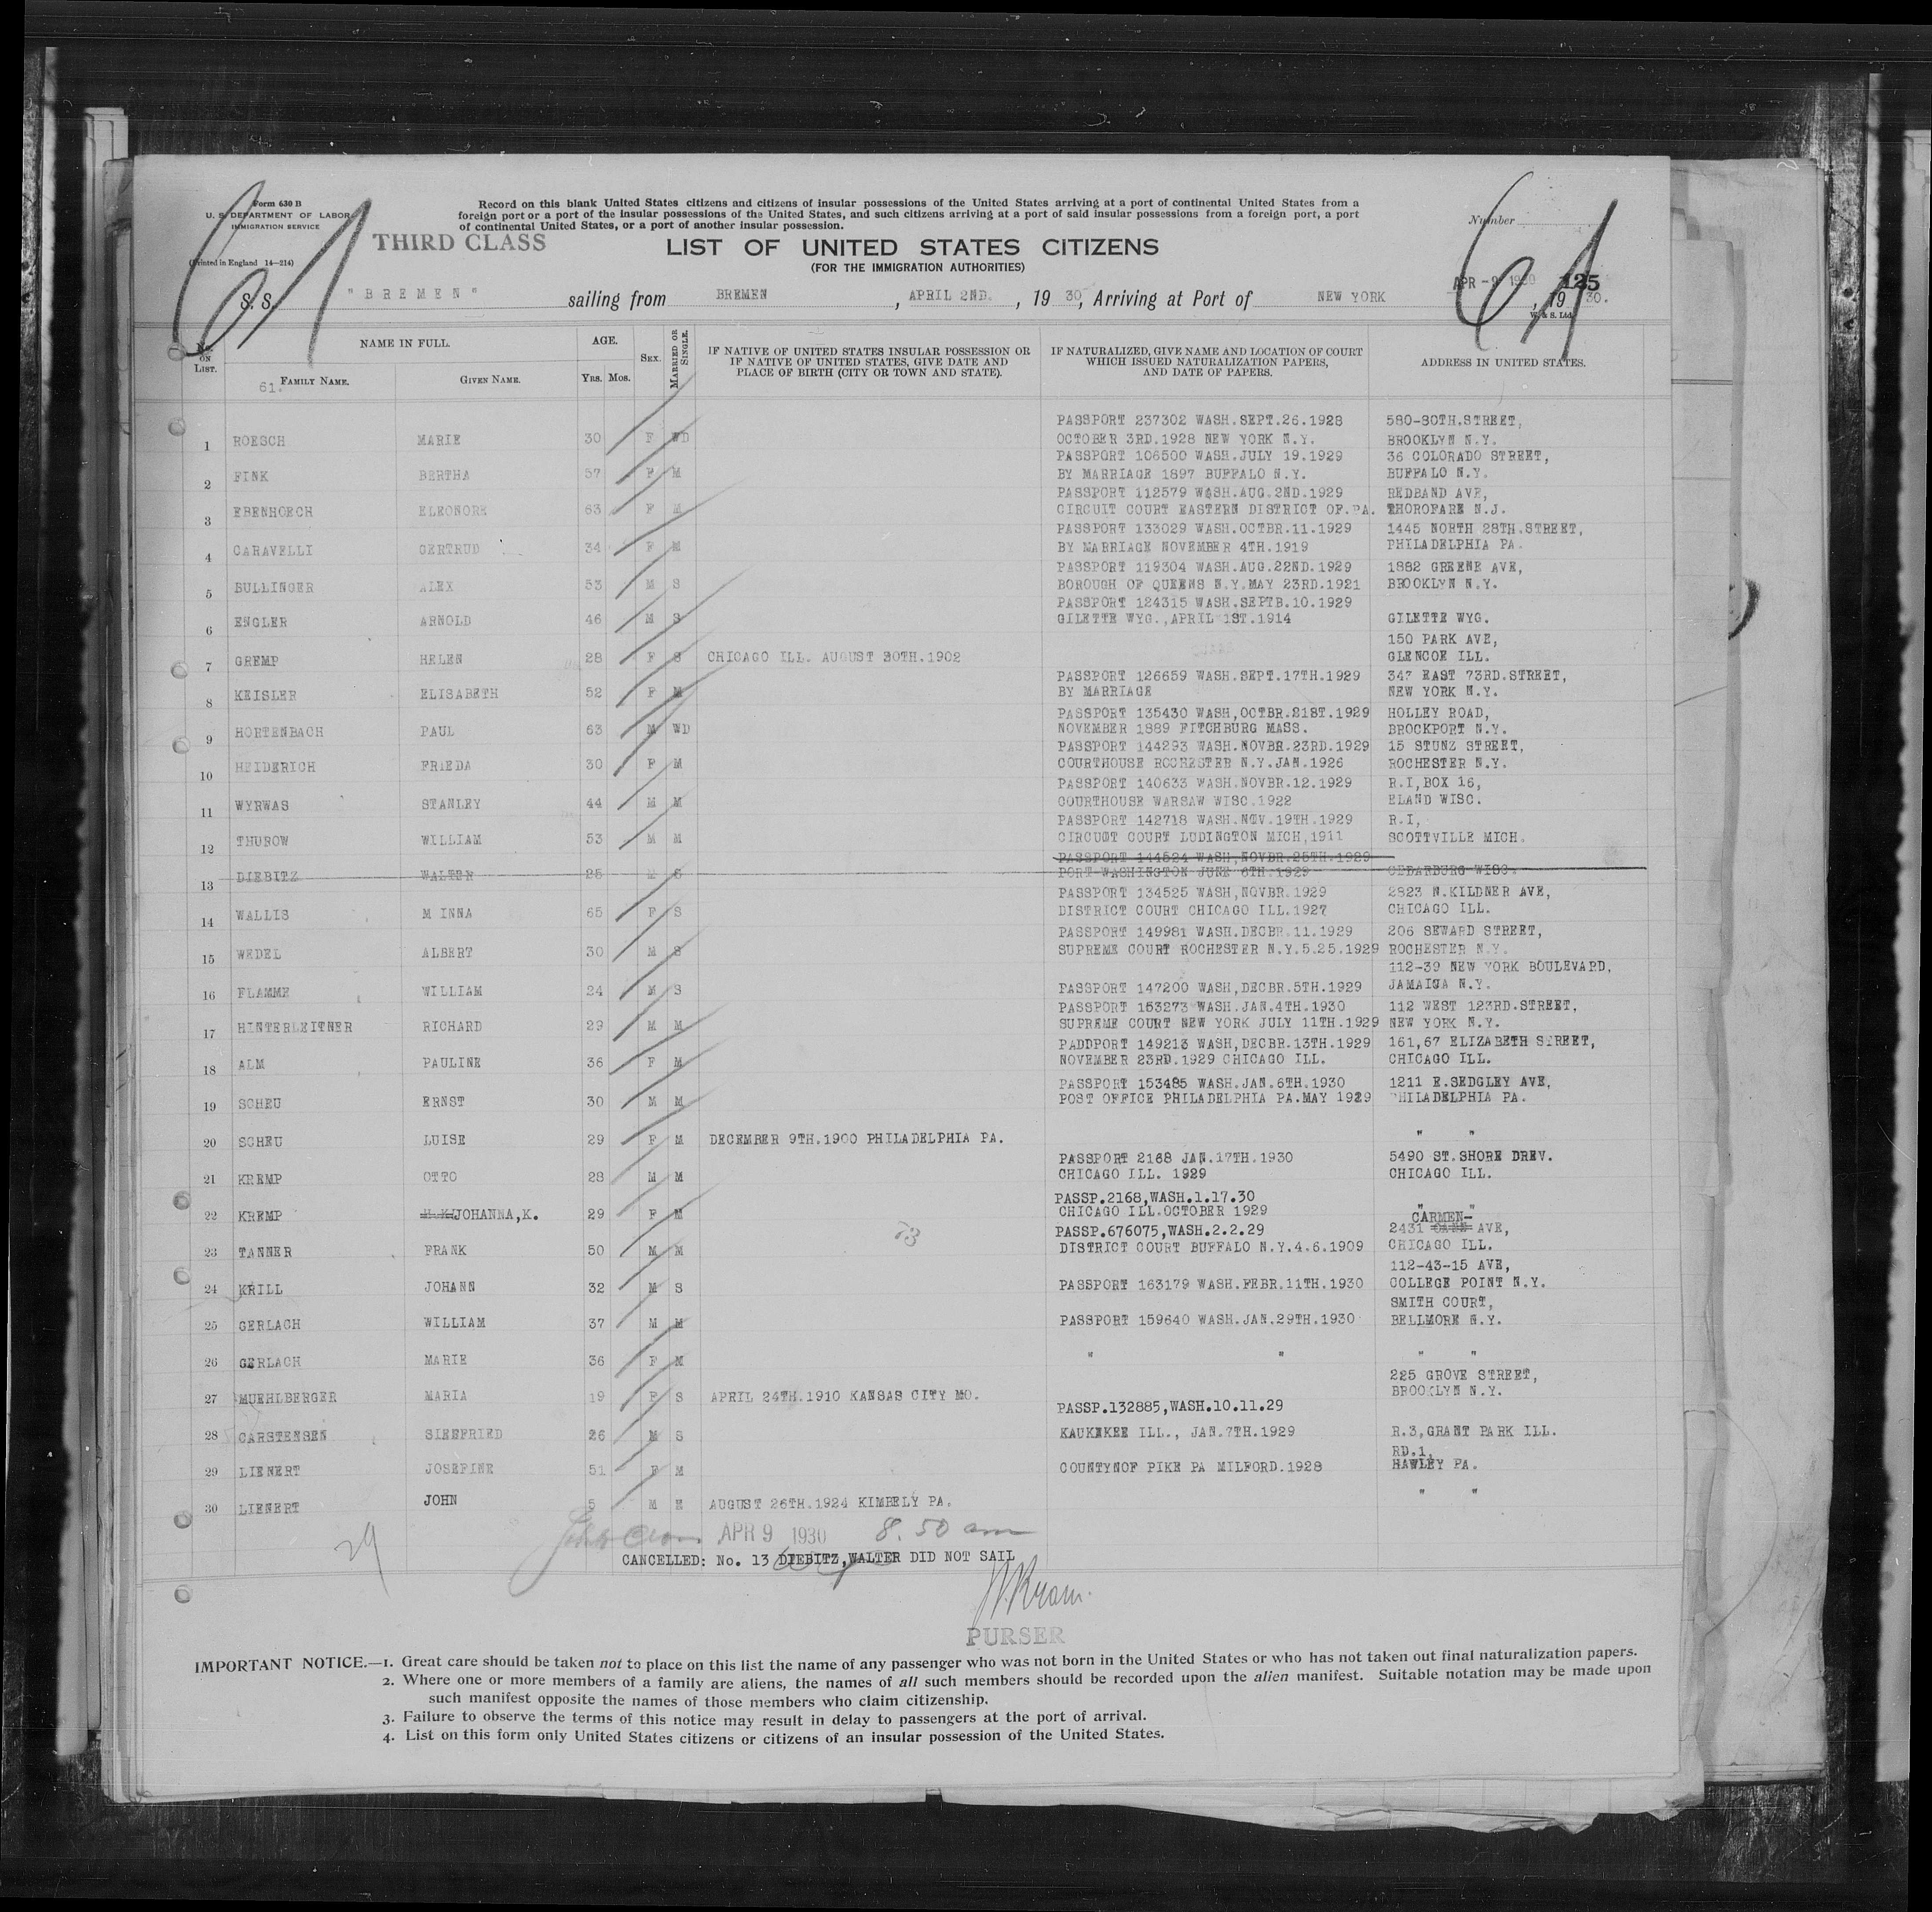 Form 630 B
U. S. DEPARTMENT OF LABOR
IMMIGRATION SERVICE
(Printed in England 14—214)
THIRD CLASS
Record on this blank United States citizens and citizens of insular possessions of the United States arriving at a port of continental United States from a
foreign port or a port of the insular possessions of the United States, and such citizens arriving at a port of said insular possessions from a foreign port, a port
of continental United States, or a port of another insular possession.
LIST OF UNITED STATES CITIZENS
(FOR THE IMMIGRATION AUTHORITIES)
Number
61
61
125
S. S. "BREMEN" sailing from BREMEN, APRIL 2ND., 19 30, Arriving at Port of NEW YORK APR -9 1930, 19 30.
W. & S. Ltd.
No. ON LIST. NAME IN FULL. AGE. SEX. MARRIED OR SINGLE. IF NATIVE OF UNITED STATES INSULAR POSSESSION OR IF NATIVE OF UNITED STATES, GIVE DATE AND PLACE OF BIRTH (CITY OR TOWN AND STATE). IF NATURALIZED, GIVE NAME AND LOCATION OF COURT WHICH ISSUED NATURALIZATION PAPERS, AND DATE OF PAPERS. ADDRESS IN UNITED STATES.
61. FAMILY NAME. GIVEN NAME. YRS. MOS.
PASSPORT 237302 WASH.SEPT.26.1928 580-80TH.STREET,
1 ROESCH MARIE 30 F WD OCTOBER 3RD.1928 NEW YORK N.Y. BROOKLYN N.Y.
PASSPORT 106500 WASH.JULY 19.1929 36 COLORADO STREET,
2 FINK BERTHA 57 F M BY MARRIAGE 1897 BUFFALO N.Y. BUFFALO N.Y.
PASSPORT 112579 WASH.AUG.2ND.1929 REDBAND AVE,
3 EBENHOECH ELEONORE 63 F M CIRCUIT COURT EASTERN DISTRICT OF.PA. THOROFARE N.J.
PASSPORT 133029 WASH.OCTBR.11.1929 1445 NORTH 28TH.STREET,
4 CARAVELLI GERTRUD 34 F M BY MARRIAGE NOVEMBER 4TH.1919 PHILADELPHIA PA.
PASSPORT 119304 WASH.AUG.22ND.1929 1882 GREENE AVE,
5 BULLINGER ALEX 53 M S BOROUGH OF QUEENS N.Y.MAY 23RD.1921 BROOKLYN N.Y.
PASSPORT 124315 WASH.SEPTB.10.1929
6 ENGLER ARNOLD 46 M S GILETTE WYG.,APRIL 1ST.1914 GILETTE WYG.
150 PARK AVE,
7 GREMP HELEN 28 F S CHICAGO ILL. AUGUST 30TH.1902 GLENCOE ILL.
PASSPORT 126659 WASH.SEPT.17TH.1929 347 EAST 73RD.STREET,
8 KEISLER ELISABETH 52 F M BY MARRIAGE NEW YORK N.Y.
PASSPORT 135430 WASH,OCTBR.21ST.1929 HOLLEY ROAD,
9 HORTENBACH PAUL 63 M WD NOVEMBER 1889 FITCHBURG MASS. BROCKPORT N.Y.
PASSPORT 144293 WASH.NOVBR.23RD.1929 15 STUNZ STREET,
10 HEIDERICH FRIEDA 30 F M COURTHOUSE ROCHESTER N.Y.JAN.1926 ROCHESTER N.Y.
PASSPORT 140633 WASH.NOVBR.12.1929 R.I,BOX 16,
11 WYRWAS STANLEY 44 M M COURTHOUSE WARSAW WISC.1922 ELAND WISC.
PASSPORT 142718 WASH.NOV.19TH.1929 R.I,
12 THUROW WILLIAM 53 M M CIRCUIT COURT LUDINGTON MICH,1911 SCOTTVILLE MICH.
PASSPORT 144524 WASH,NOVBR.25TH.1929
13 DIEBITZ WALTER 25 M S PORT WASHINGTON JUNE 6TH.1929 CEDARBURG WISC.
PASSPORT 134525 WASH,NOVBR.1929 2823 N.KILDNER AVE,
14 WALLIS M INNA 65 F S DISTRICT COURT CHICAGO ILL.1927 CHICAGO ILL.
PASSPORT 149981 WASH.DECBR.11.1929 206 SEWARD STREET,
15 WEDEL ALBERT 30 M S SUPREME COURT ROCHESTER N.Y.5.25.1929 ROCHESTER N.Y.
112-39 NEW YORK BOULEVARD,
16 FLAMME WILLIAM 24 M S PASSPORT 147200 WASH,DECBR.5TH.1929 JAMAICA N.Y.
PASSPORT 153273 WASH.JAN.4TH.1930 112 WEST 123RD.STREET,
17 HINTERLEITNER RICHARD 29 M M SUPREME COURT NEW YORK JULY 11TH.1929 NEW YORK N.Y.
PADDPORT 149213 WASH,DECBR.13TH.1929 161,67 ELIZABETH STREET,
18 ALM PAULINE 36 F M NOVEMBER 23RD.1929 CHICAGO ILL. CHICAGO ILL.
PASSPORT 153485 WASH.JAN.6TH.1930 1211 E.SEDGLEY AVE,
19 SCHEU ERNST 30 M M POST OFFICE PHILADELPHIA PA.MAY 1929 PHILADELPHIA PA.
20 SCHEU LUISE 29 F M DECEMBER 9TH.1900 PHILADELPHIA PA. " "
PASSPORT 2168 JAN.17TH.1930 5490 ST.SHORE DREV.
21 KREMP OTTO 28 M M CHICAGO ILL. 1929 CHICAGO ILL.
PASSP.2168,WASH.1.17.30
22 KREMP JOHANNA,K. 29 F M CHICAGO ILL.OCTOBER 1929 " "
CARMEN-
PASSP.676075,WASH.2.2.29 2431 AVE,
23 TANNER FRANK 50 M M DISTRICT COURT BUFFALO N.Y.4.6.1909 CHICAGO ILL.
73
112-43-15 AVE,
24 KRILL JOHANN 32 M S PASSPORT 163179 WASH.FEBR.11TH.1930 COLLEGE POINT N.Y.
SMITH COURT,
25 GERLACH WILLIAM 37 M M PASSPORT 159640 WASH.JAN.29TH.1930 BELLMORE N.Y.
26 GERLACH MARIE 36 F M " " " "
225 GROVE STREET,
27 MUEHLBERGER MARIA 19 F S APRIL 24TH.1910 KANSAS CITY MO. BROOKLYN N.Y.
PASSP.132885,WASH.10.11.29
28 CARSTENSEN SIEGFRIED 26 M S KAUKEKEE ILL., JAN.7TH.1929 R.3,GRANT PARK ILL.
RD.1,
29 LIENERT JOSEFINE 51 F M COUNTYNOF PIKE PA MILFORD.1928 HAWLEY PA.
30 LIENERT JOHN 5 M AUGUST 26TH.1924 KIMBELY PA. " "
APR 9 1930 8.50 am
29
CANCELLED: No. 13 DIEBITZ,WALTER DID NOT SAIL
PURSER
IMPORTANT NOTICE.—1. Great care should be taken not to place on this list the name of any passenger who was not born in the United States or who has not taken out final naturalization papers.
2. Where one or more members of a family are aliens, the names of all such members should be recorded upon the alien manifest. Suitable notation may be made upon
such manifest opposite the names of those members who claim citizenship.
3. Failure to observe the terms of this notice may result in delay to passengers at the port of arrival.
4. List on this form only United States citizens or citizens of an insular possession of the United States.